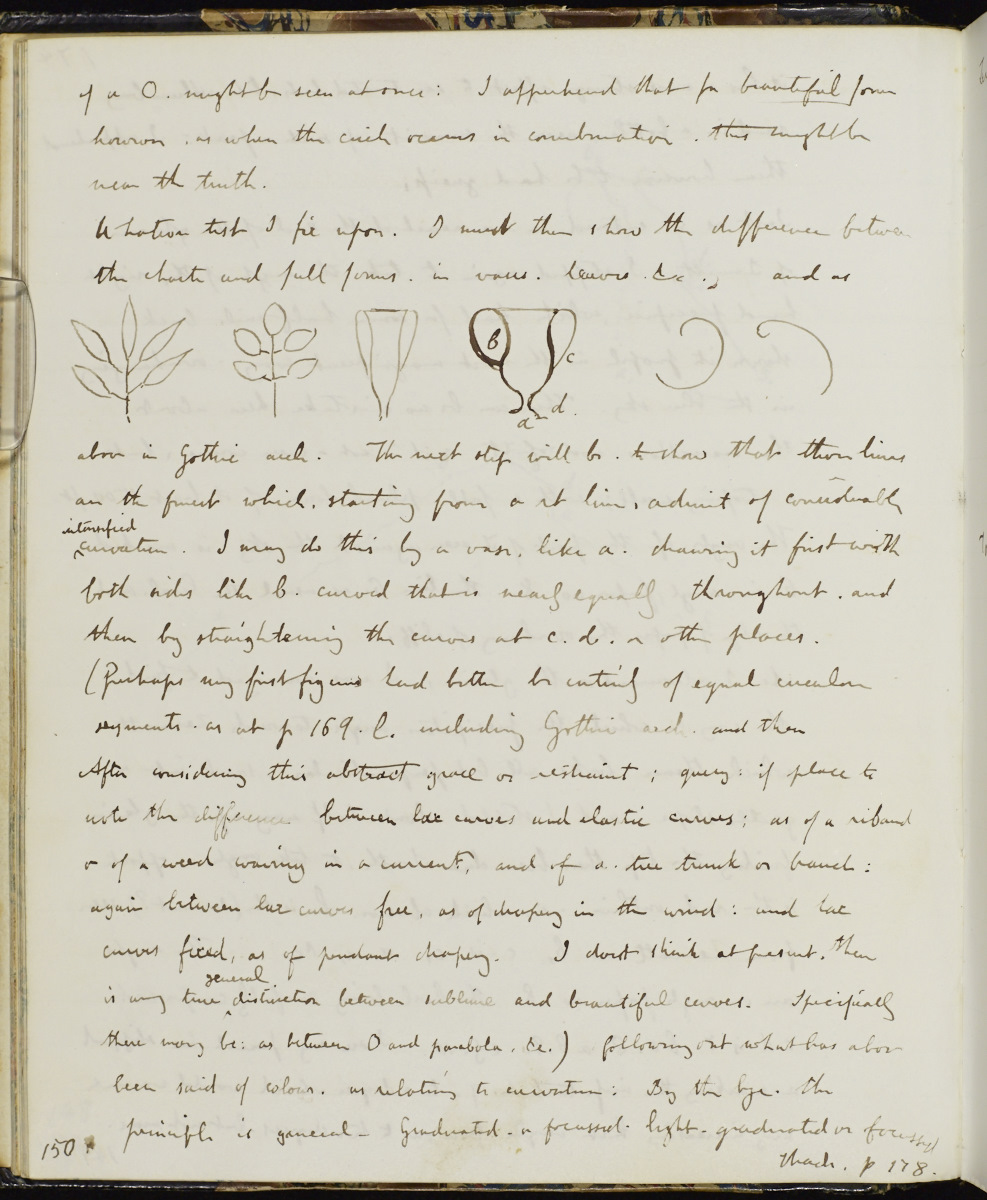 of a O. might be seen at once: I apprehend that for beautiful form
however. as when the circle occurs in combination. this might be
near the truth.
Whatever test I fix upon. I must then show the difference between
the chaste and full forms. in vases. leaves. &c., and as
b
c
d.
a
above in Gothic arch. The next step will be. to show that those lines
are the finest which, starting from a st line, admit of considerably
intensified
curvature. I may do this by a vase, like a. drawing it first with
both sides like b. curved that is nearly equally throughout. and
then by straightening the curves at c. d. or other places.
(Perhaps my first figures had better be entirely of equal circular
segments. as at p 169. l. including Gothic arch. and then
After considering this abstract grace or restraint; query: if place to
note the difference between lax curves and elastic curves; as of a riband
or of a weed waving in a current, and of a. tree trunk or branch:
again between lax curves free, as of drapery in the wind: and lax
curves fixed, as of pendant drapery. I dont think at present, there
general
is any true distinction between sublime and beautiful curves. Specifically
there may be: as between O and parabola. &c.) following out what has above
been said of colour. as relating to curvature: By the bye. the
principle is general - Graduated. or focussed. light. graduated or focussed
150
shade. p 178.